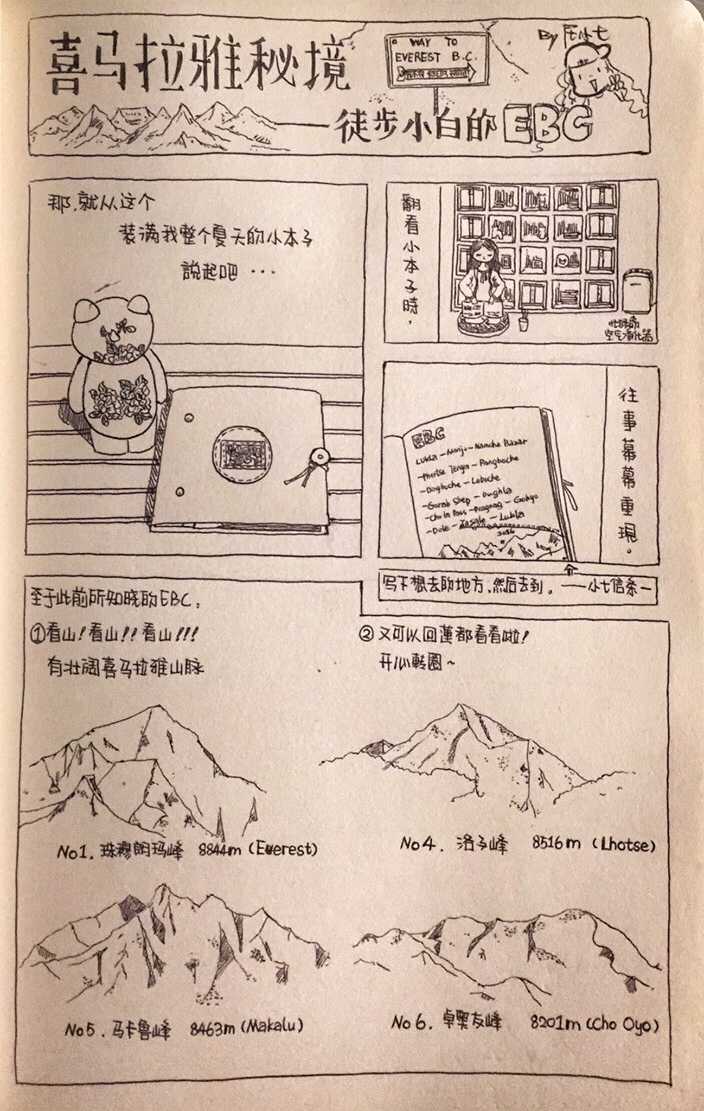 喜马拉雅秘境
WAY TO
EVEREST B.C.
By
徒步小白的EBC
那,就从这个
装满我整个夏天的小本子
説起吧...
翻看小本子時,
空气净化器
EBC
Lukla - Monjo - Namche Bazar
- Phortse Tenga - Pangboche
- Dingboche - Lobuche
- Gorak Shep - Dughla
- Cho la Pass - Dragnag - Gokyo
- Dole - - Lukla
2016
往事幕幕重现。
写下想去的地方,然后去到。——小七信条—
至于此前所知晓的EBC,
①看山!看山!!看山!!!
有壮阔喜马拉雅山脉
②又可以回蓮都看看啦!
开心转圈~
No1.珠穆朗玛峰 8844m (Everest)
No4.洛子峰 8516m (Lhotse)
No5.马卡鲁峰 8463m (Makalu)
No6.卓奥友峰 8201m (Cho Oyo)